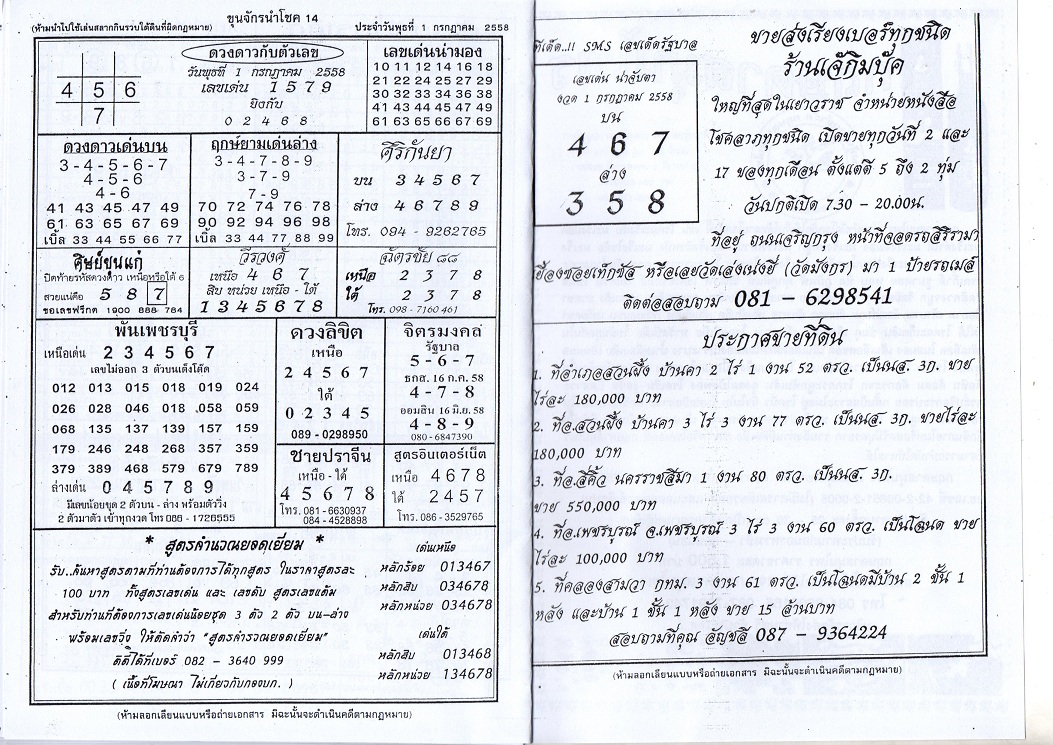 ขุนจักรนำโชค 14
(ห้ามนำไปใช้เล่นสลากกินรวบใต้ดินที่ผิดกฎหมาย)
ประจำวันพุธที่ 1 กรกฎาคม 2558
4 5 6
7
ดวงดาวกับตัวเลข
วันพุธที่ 1 กรกฎาคม 2558
เลขเด่น 1 5 7 9
ยิงกับ
0 2 4 6 8
เลขเด่นน่ามอง
10 11 12 14 16 18
21 22 24 25 27 29
30 32 33 34 36 38
41 43 44 45 47 49
61 63 65 66 67 69
ดวงดาวเด่นบน
3-4-5-6-7
4-5-6
4-6
41 43 45 47 49
61 63 65 67 69
เบิ้ล 33 44 55 66 77
ฤกษ์ยามเด่นล่าง
3-4-7-8-9
3-7-9
7-9
70 72 74 76 78
90 92 94 96 98
เบิ้ล 33 44 77 88 99
ศิริกันยา
บน 3 4 5 6 7
ล่าง 4 6 7 8 9
โทร. 094 - 9262765
ศิษย์ขุนแก้
ปิดท้ายรหัสดวงดาว เหนือหรือใต้ 6
สวยแน่คือ 5 8 7
ขอเลขฟรีกด 1900 888 784
วีรวงศ์
เหนือ 4 6 7
สิบ หน่วย เหนือ - ใต้
1 3 4 5 6 7 8
ฉัตรชัย ๘๘
เหนือ 2 3 7 8
ใต้ 2 3 7 8
โทร. 098 - 7160 461
พันเพชรบุรี
เหนือเด่น 2 3 4 5 6 7
เลขไม่ออก 3 ตัวบนเต็งโต๊ด
012 013 015 018 019 024
026 028 046 018 .058 059
068 135 137 139 157 159
179 246 248 268 357 359
379 389 468 579 679 789
ล่างเด่น 0 4 5 7 8 9
มีเลขน้อยชุด 2 ตัวบน - ล่าง พร้อมตัววิ่ง
2 ตัวมาตัว เข้าทุกงวด โทร 086 - 1726555
ดวงลิขิต
เหนือ
2 4 5 6 7
ใต้
0 2 3 4 5
089 - 0298950
จิตรมงคล
รัฐบาล
5 -6 -7
ธกส. 16 ก.ค. 58
4 -7 -8
ออมสิน 16 มิ.ย. 58
4 -8 -9
080 -6847390
ชายปราจีน
เหนือ - ใต้
4 5 6 7 8
โทร. 081 - 6630937
084 - 4528898
สูตรอินเตอร์เน็ต
เหนือ 4 6 7 8
ใต้ 2 4 5 7
โทร. 086 - 3529765
* สูตรคำนวณยอดเยี่ยม *
รับ..ค้นหาสูตรตามที่ท่านต้องการได้ทุกสูตร ในราคาสูตรละ
100 บาท ทั้งสูตรเลขเด่น และ เลขดับ สูตรเลขแต้ม
สำหรับท่านที่ต้องการเลขเด่นน้อยชุด 3 ตัว 2 ตัว บน-ล่าง
พร้อมเลขวิ่ง ให้ตัดคำว่า "สูตรคำรวณยอดเยี่ยม"
ติดต่อได้ที่เบอร์ 082 - 3640 999
( เนื้อที่โฆษณา ไม่เกี่ยวกับกองบก. )
เด่นเหนือ
หลักร้อย 013467
หลักสิบ 034678
หลักหน่วย 034678
เด่นใต้
หลักสิบ 013468
หลักหน่วย 134678
(ห้ามลอกเลียนแบบหรือถ่ายเอกสาร มิฉะนั้นจะดำเนินคดีตามกฎหมาย)
ทีเด็ด..!! SMS เลขเด็ดรัฐบาล
เลขเด่น น่าจับตา
งวด 1 กรกฎาคม 2558
บน
4 6 7
ล่าง
3 5 8
ขายส่งเรียงเบอร์ทุกชนิด
ร้านเจ้กิมบุ๊ค
ใหญ่ที่สุดในเยาวราช จำหน่ายหนังสือ
โชคลาภทุกชนิด เปิดขายทุกวันที่ 2 และ
17 ของทุกเดือน ตั้งแต่ตี 5 ถึง 2 ทุ่ม
วันปกติเปิด 7.30 - 20.00น.
ที่อยู่ ถนนเจริญกรุง หน้าที่จอดรถสิริรามา
เยื้องซอยเท็กซัส หรือเลยวัดเล่งเน่งยี่ (วัดมังกร) มา 1 ป้ายรถเมล์
ติดต่อสอบถาม 081 - 6298541
ประกาศขายที่ดิน
1. ที่อำเภอสวนผึ้ง บ้านคา 2 ไร่ 1 งาน 52 ตรว. เป็นนส. 3ก. ขาย
ไร่ละ 180,000 บาท
2. ที่อ.สวนผึ้ง บ้านคา 3 ไร่ 3 งาน 77 ตรว. เป็นนส. 3ก. ขายไร่ละ
180,000 บาท
3. ที่อ.สีคิ้ว นครราชสีมา 1 งาน 80 ตรว. เป็นนส. 3ก.
ขาย 550,000 บาท
4. ที่อ.เพชรบูรณ์ จ.เพชรบูรณ์ 3 ไร่ 3 งาน 60 ตรว. เป็นโฉนด ขาย
ไร่ละ 100,000 บาท
5. ที่คลองสามวา กทม. 3 งาน 61 ตรว. เป็นโฉนดมีบ้าน 2 ชั้น 1
หลัง และบ้าน 1 ชั้น 1 หลัง ขาย 15 ล้านบาท
สอบถามที่คุณ อัญชลี 087 - 9364224
(ห้ามลอกเลียนแบบหรือถ่ายเอกสาร มิฉะนั้นจะดำเนินคดีตามกฎหมาย)